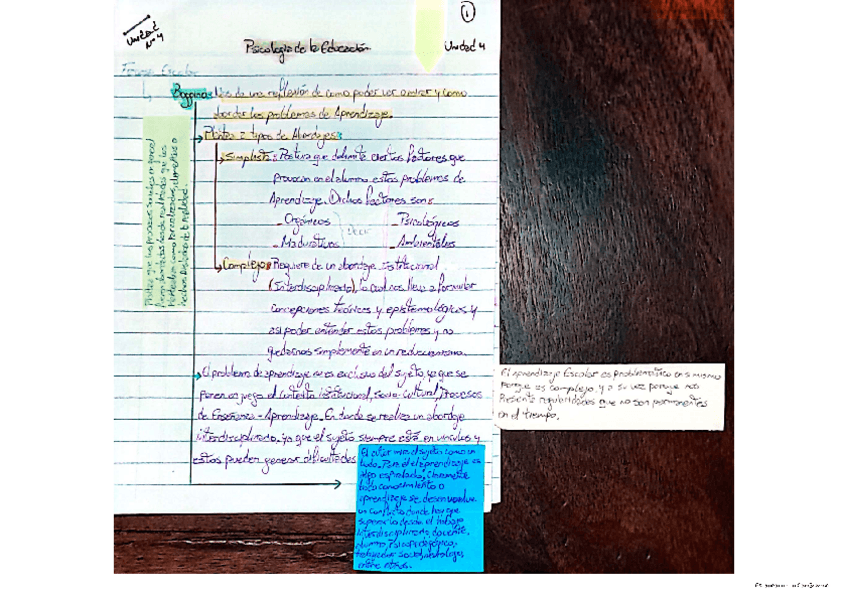 Unidad
Nº4
1
Psicología de la Educación
Unidad 4
Baggana: Nos da una reflexión de como poder ver o mirar y como
abordar los problemas de Aprendizaje.
Plantea 2 tipos de Abordajes:
Simplista: Postura que delimita ciertos factores que
provocan en el alumno estos problemas de
Aprendizaje. Dichos factores son:
_ Orgánicos _ Psicológicos
_ Madurativos _ Ambientales
Complejo: Requiere de un abordaje Institucional
(Interdisciplinario), lo cual nos lleva a formular
concepciones teóricos y epistemológicos y
así poder entender estos problemas y no
quedarnos simplemente en un reduccionismo.
El problema de aprendizaje no es exclusivo del sujeto, ya que se
ponen en juego el contexto institucional, socio-cultural, Procesos
de Enseñanza - Aprendizaje. En donde se realiza un abordaje
interdisciplinario, ya que el sujeto siempre está en vínculos y
estos pueden generar dificultades
Plantea que los procesos sociales en general
El aprendizaje Escolar es problemático en si mismo
Porque es complejo, y a su vez porque nos
Presenta regularidades que no son permanentes
en el tiempo.
El autor mira al sujeto como un
todo. Para él el aprendizaje es
algo espiralado, claramente
todo conocimiento o
aprendizaje se desenvuelve
un conflicto donde hay que
superarlo desde el trabajo
interdisciplinario, docente,
alumno, Psicopedagógico,
trabajador social,
entre otros.